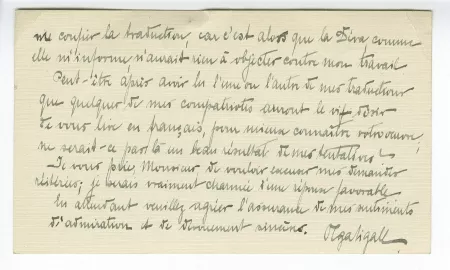 me confier la traduction, car c'est alors que la Diva, comme
elle m'informe n'aurait rien à objecter contre mon travail
Peut-être après avoir lu l'une ou l'autre de mes traductions
que quelques de mes compatriotes auront le vif désir
de vous lire en français, pour mieux connaître votre oeuvre,
ne serait-ce pas là un beau résultat de mes tentatives?
Je vous prie, Monsieur, de vouloir excuser mes demandes
réitérées; je serais vraiment charmée d'une réponse favorable
En attendant veuillez agréer l'assurance de mes sentiments
d'admiration et de dévouement sincère.
Olga Sigall